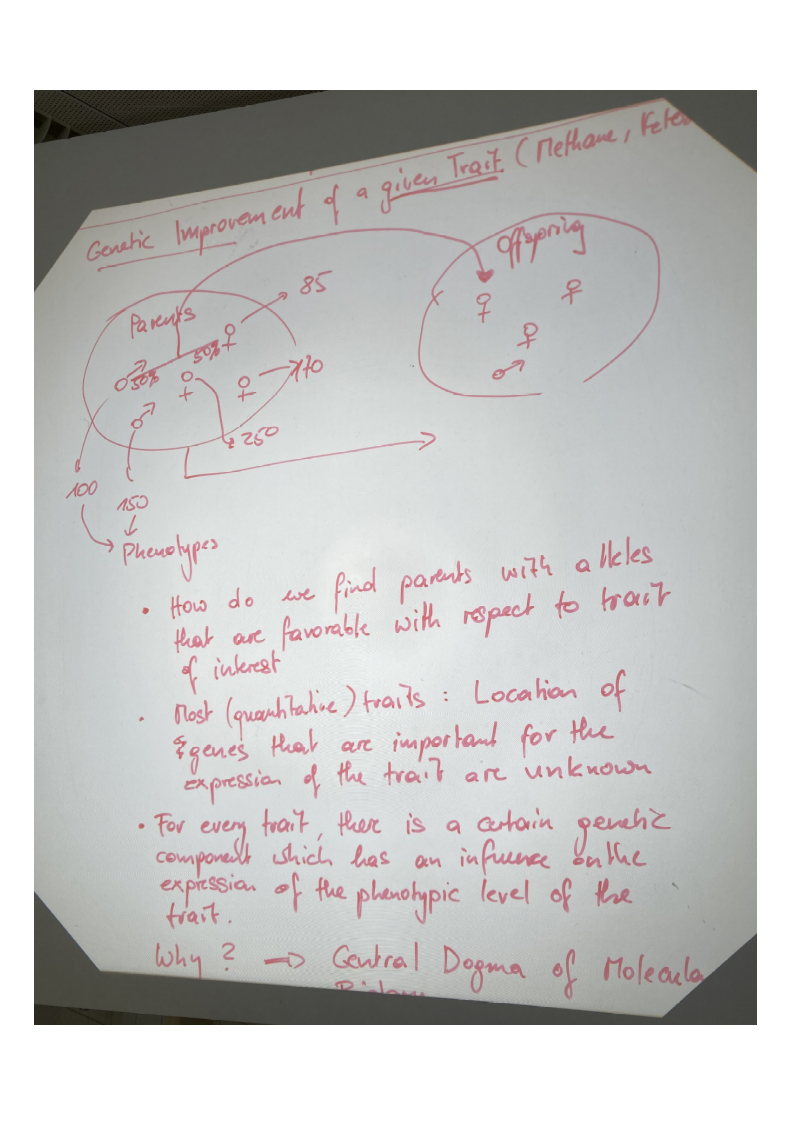 Genetic Improvement of a given Trait (Methane,
Parents
Offspring
85
50%
50%
170
250
100
150
Phenotypes
• How do we find parents with alleles
that are favorable with respect to trait
of interest
• Most (quantitative) traits : Location of
genes that are important for the
expression of the trait are unknown
• For every trait, there is a certain genetic
component which has an influence on the
expression of the phenotypic level of the
trait.
Why? → Central Dogma of Molecula